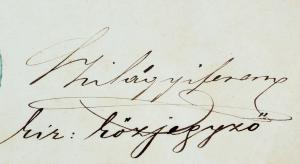 Szilágyi Ferenc
kir: közjegyző